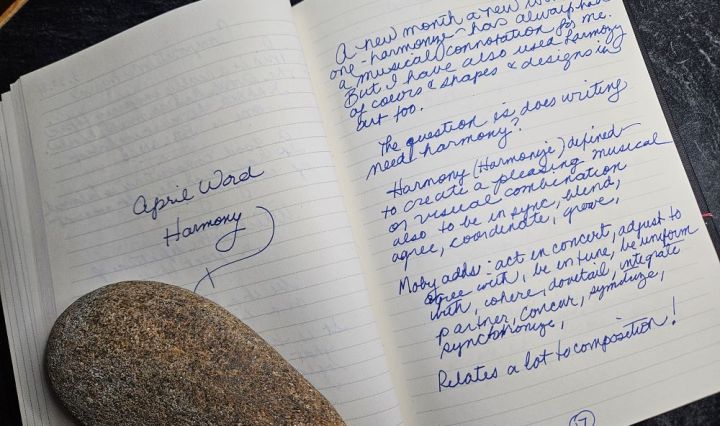 April Word
Harmony
A new month a new wo
one - harmonize - has always had
a musical connotation for me.
But I have also used harmony
of colors & shapes & designs in
art too.
The question is does writing
need harmony?
Harmony (Harmonize) defined -
to create a pleasing musical
or visual combination
also to be in sync, blend,
agree, coordinate, groove,
Moby adds: act in concert, adjust to
agree with, be in tune, be uniform
with, cohere, dovetail, integrate
partner, concur, symbolize,
synchronize,
Relates a lot to composition!
17